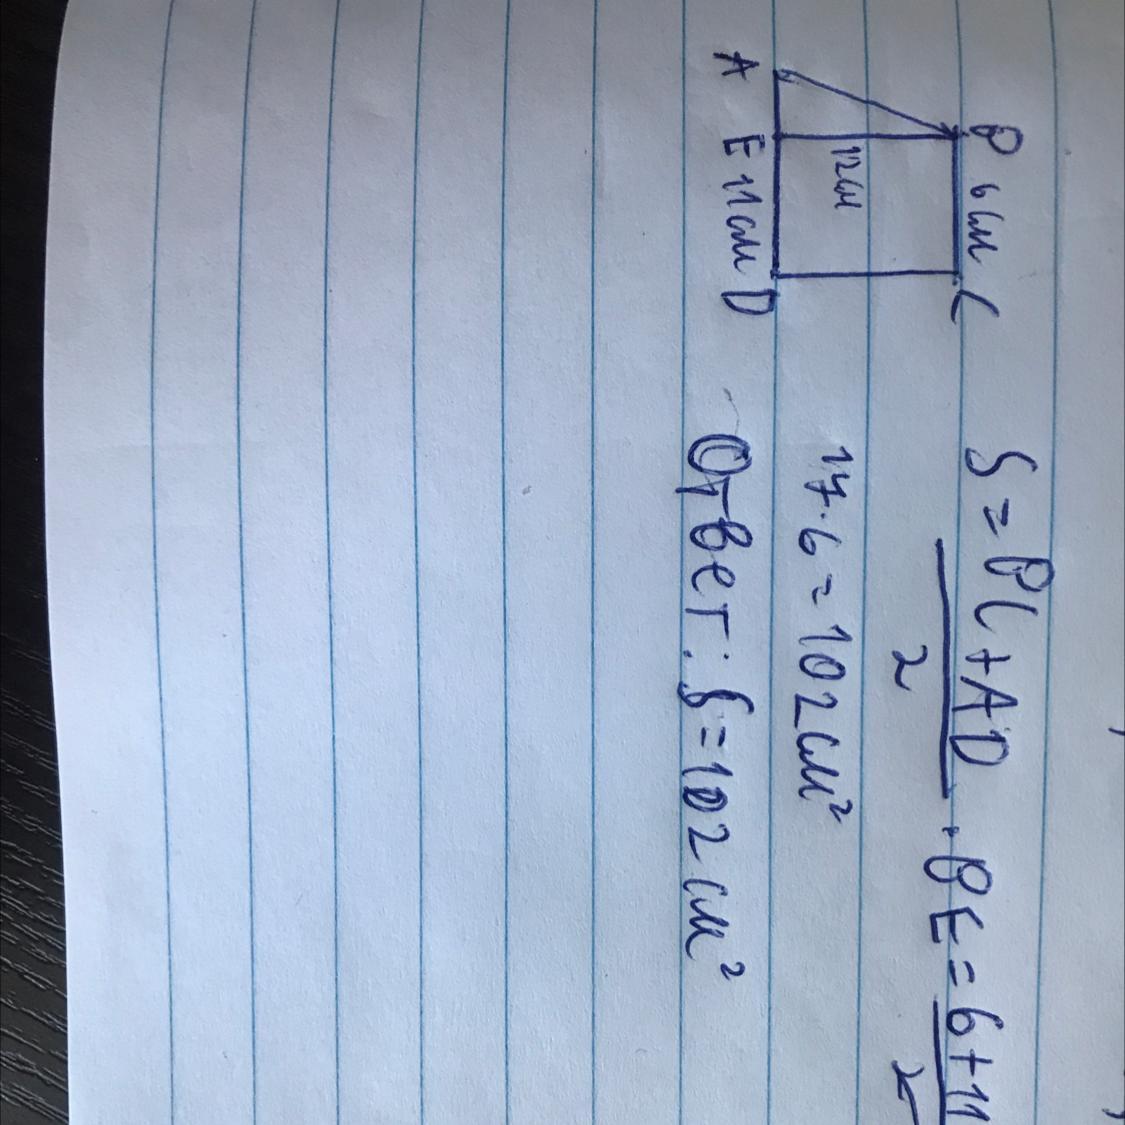 P 6 см C
12 см
A E 11 см D
S = PC + AD / 2 · PE = 6 + 11 / 2
17 · 6 = 102 см²
Ответ: S = 102 см²